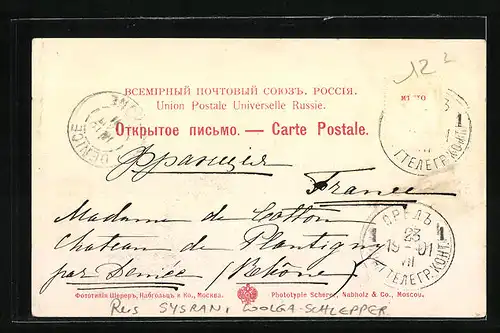 12 2
ВСЕМІРНЫЙ ПОЧТОВЫЙ СОЮЗЪ. РОССІЯ.
Union Postale Universelle Russie.
Открытое письмо. — Carte Postale.
DENICE
1
ТЕЛЕГР. КОНТ.
Франція
France
Madame de Cotton
Chateau de Plantigny
par Denicé (Rhône)
1 23 1
19-01
VII
ТЕЛЕГР. КОНТ.
Фототипія Шереръ, Набгольцъ и Ко., Москва.
Phototypie Scherer, Nabholz & Co., Moscou.
SYSRAN, WOLGA-SCHLEPPER